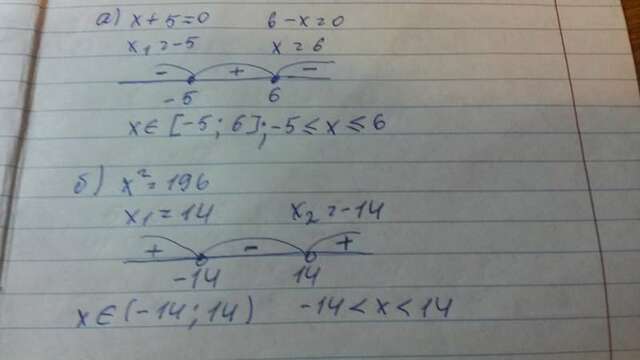 а) x + 5 = 0 6 - x = 0
x₁ = -5 x = 6
- + -
-5 6
x ∈ [-5; 6]; -5 ≤ x ≤ 6
б) x² = 196
x₁ = 14 x₂ = -14
+ - +
-14 14
x ∈ (-14; 14) -14 < x < 14